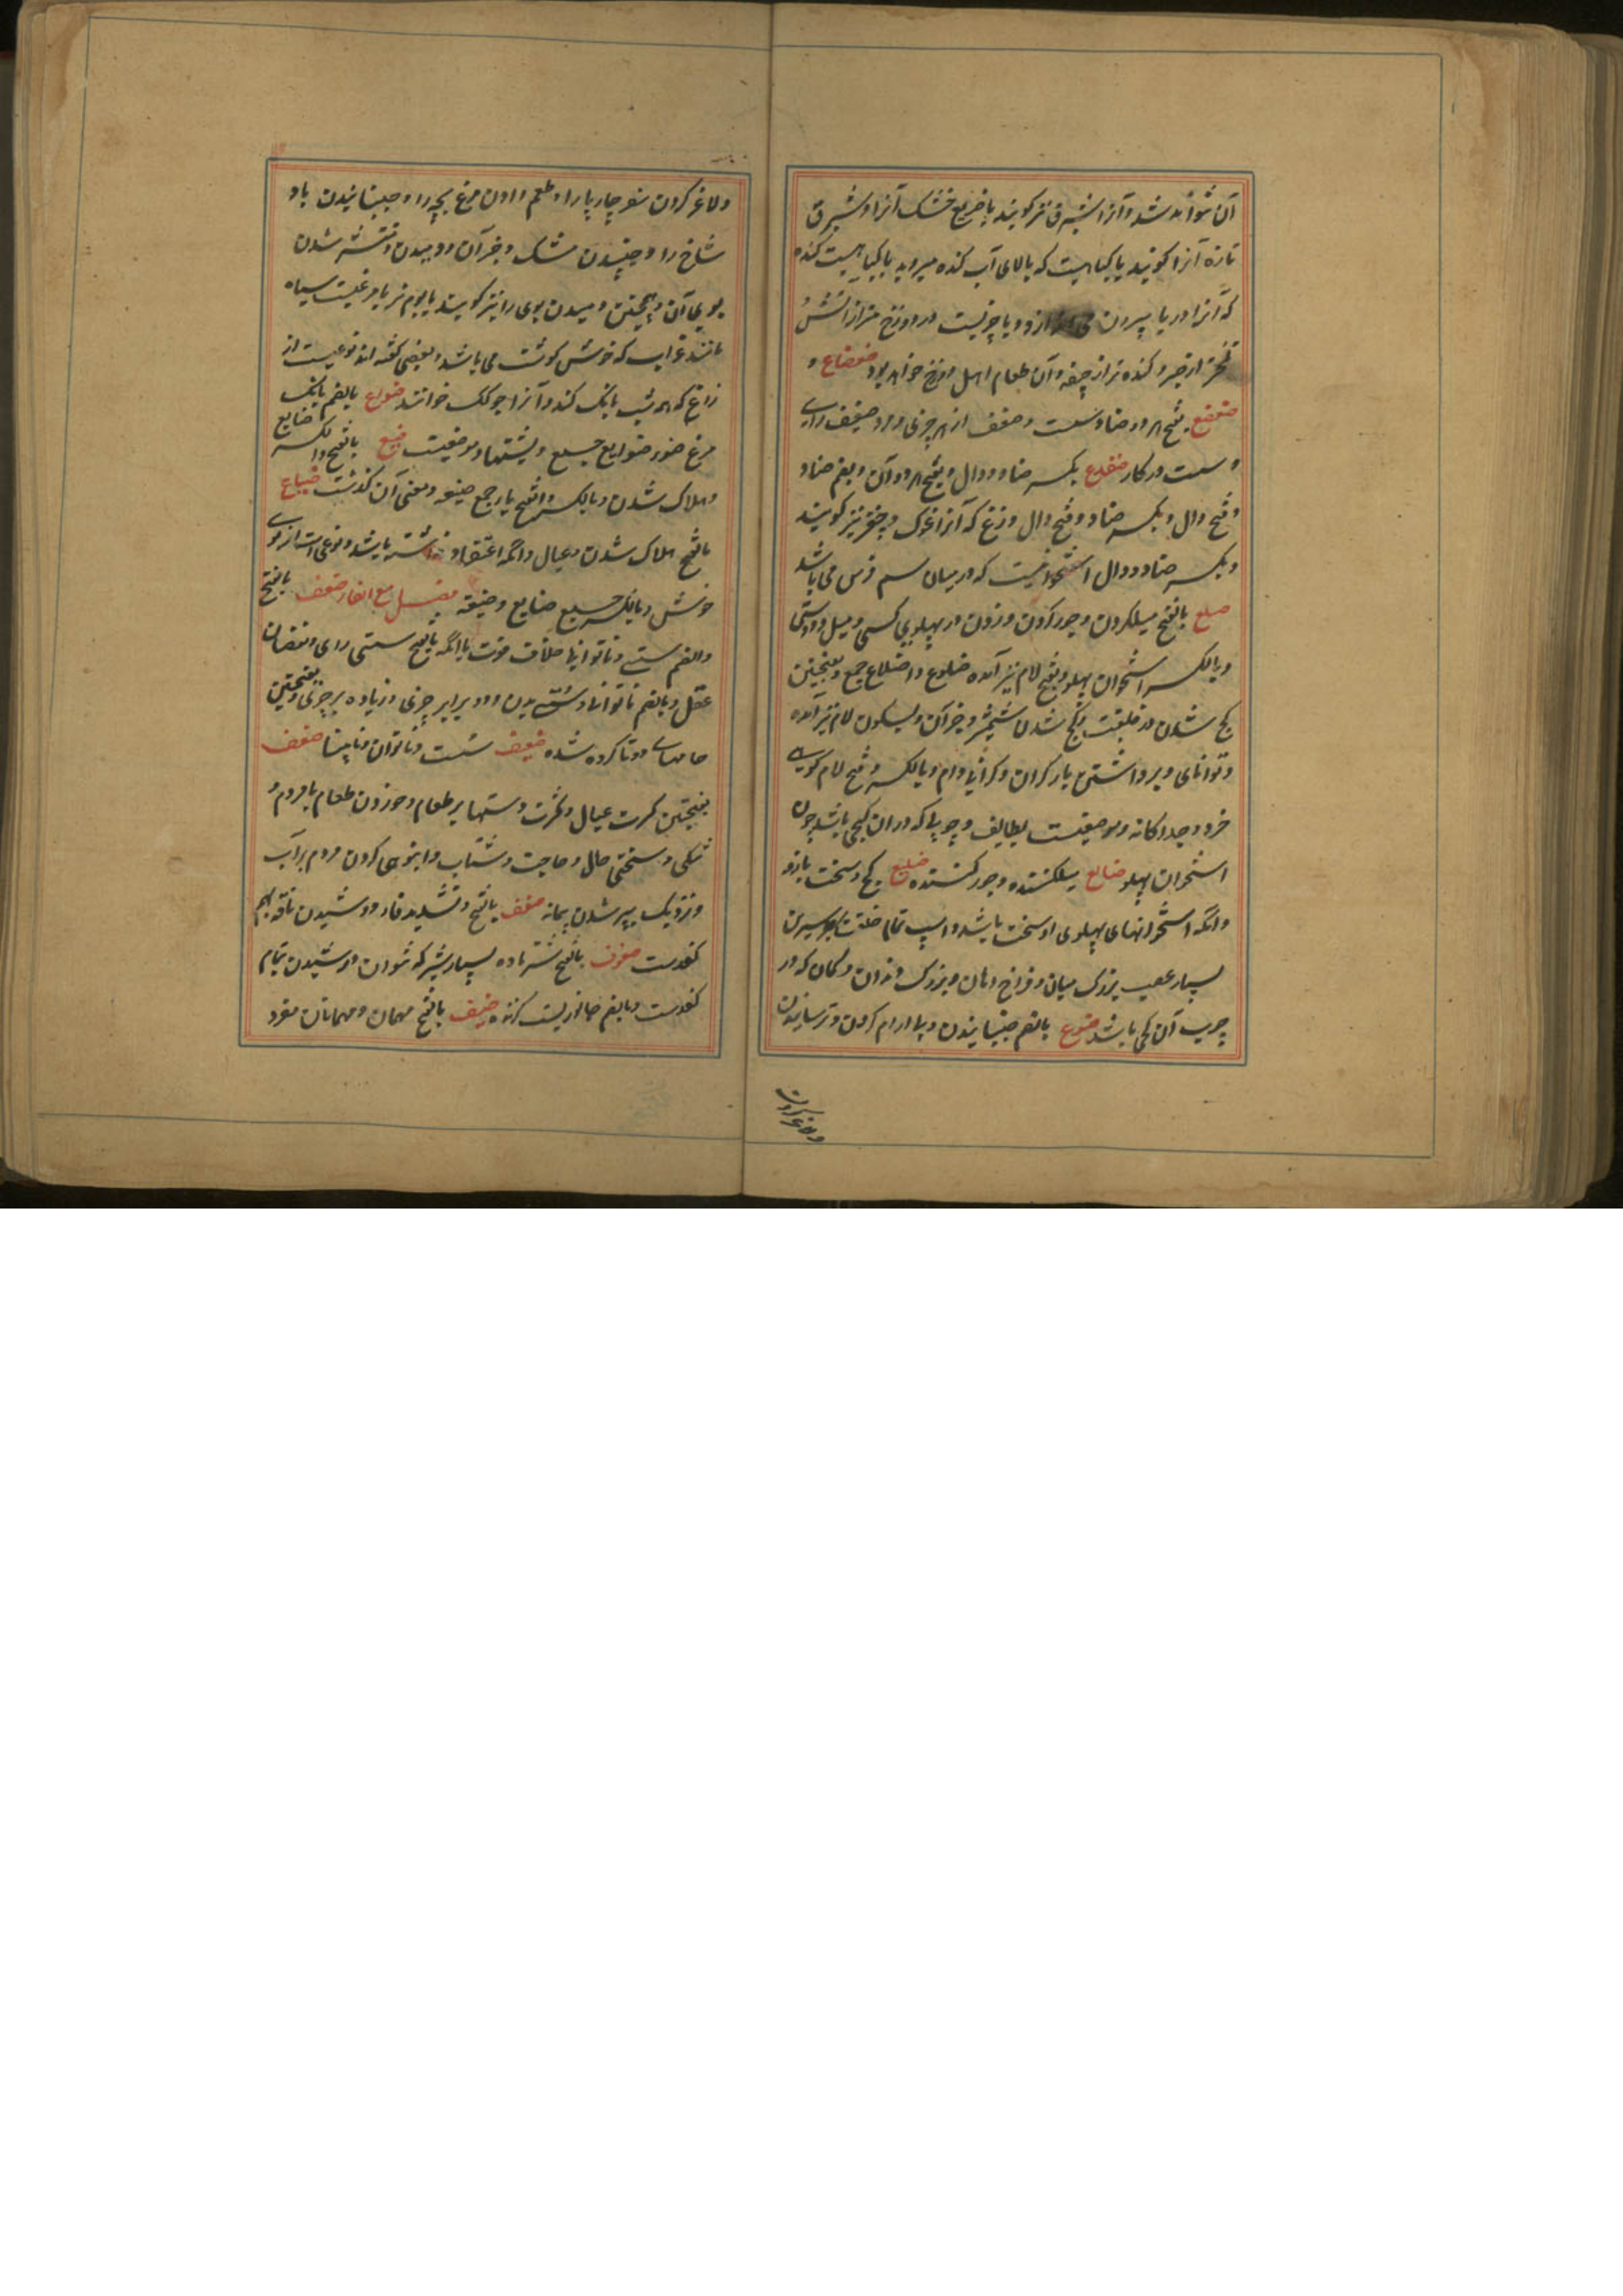 آن شواند شد و آنرا شبرق نیز گویند یا ضریع خشک آنرا و شبرق
تازه آنرا گویند یا گیاهیست که بالای آب گنده میروید یا گیاهیست گنده
که آنرا دریا بیرون می اندازد و یا چیزیست در دوزخ
تلختر از صبر و گنده تر از جیفه و آن طعام اهل دوزخ خواهد بود ضعضاع و
ضعضع بفتح هر دو ضاد سست و ضعف از هر چیزی و مرد ضعیف رای
و سست در کار ضفدع بکسر ضاد و دال و بفتح هر دو آن و بضم ضاد
و فتح دال و بکسر ضاد و فتح دال وزغ که آنرا غوک و چغز نیز گویند
و بکسر ضاد و دال استخوانیست که در میان سم فرس می باشد
ضلع بالفتح میلکردن و جور کردن و زدن در پهلوی کسی و میل و دوستی
و بالکسر استخوان پهلو و بفتح لام نیز آمده ضلوع و اضلاع جمع و بفتحتین
کج شدن در خلقت و کج شدن شمشیر و جز آن و بسکون لام نیز آمده
و توانای و برداشتن بار گران و گرانی وام و بالکسر و فتح لام کوهی
خرد و جداگانه و موضعیست بطایف و چوبی که در آن کجی باشد چون
استخوان پهلو ضالع میلکننده و جور کننده ضلیع کج و سخت بازو
و آنکه استخوانهای پهلوی او سخت باشد و اسپ تمام خلقت
بسیار عصب بزرگ میان و فراخ دهان و بزرگ دندان و کمان که در
چوب آن کجی باشد ضوع بالضم جنبانیدن و بی آرام کردن و ترسانیدن
ولاغر کردن
ولاغر کردن سفر چارپا را و طعم دادن مرغ بچه را و جنبانیدن باد
شاخ را و جنبیدن مشک و جز آن و دمیدن و منتشر شدن
بوی آن و همچنین دمیدن بوی را نیز گویند یا بوم نر یا مرغیست سیاه
مانند غراب که خوش گوشت می باشد و بعضی گفته اند نوعیست از
زاغ که هر شب بانگ کند و آنرا چولک خوانند ضواع بالضم بانگ
مرغ ضوع ضوایع جمع و پشتها و موضعیست ضیع بالفتح و الکسر ضایع
و هلاک شدن و بالکسر و فتح یا جمع ضیعه و معنی آن گذشت ضیاع
بالفتح هلاک شدن و عیال و آنکه اعتقاد نداشته باشد و نوعی است از بوی
خوش و بالکسر جمع ضایع و ضیعه فصل مع الفا ضعف بالفتح
و الضم سستی و ناتوانی خلاف قوت یا آنکه بالفتح سستی رای و نقصان
عقل و بالضم ناتوانی و سستی بدن و دو برابر چیزی و زیاده بر چیزی و بفتحتین
جامهای دوتا کرده شده ضعیف سست و ناتوان و نابینا ضفف
بفتحتین کثرت عیال و کثرت دستها بر طعام و خوردن طعام با مردم و
تنگی و سختی حال و حاجت و شتاب و انبوهی کردن مردم بر آب
و نزدیک پر شدن پیمانه ضف بالفتح و تشدید فا دوشیدن ناقه بهم
کفدست ضفوف بالفتح شتر ماده بسیار شیر که نتوان دوشیدن بتمام
کفدست و بالضم جانوریست گزنده ضیف بالفتح مهمان و مهمانان مفرد